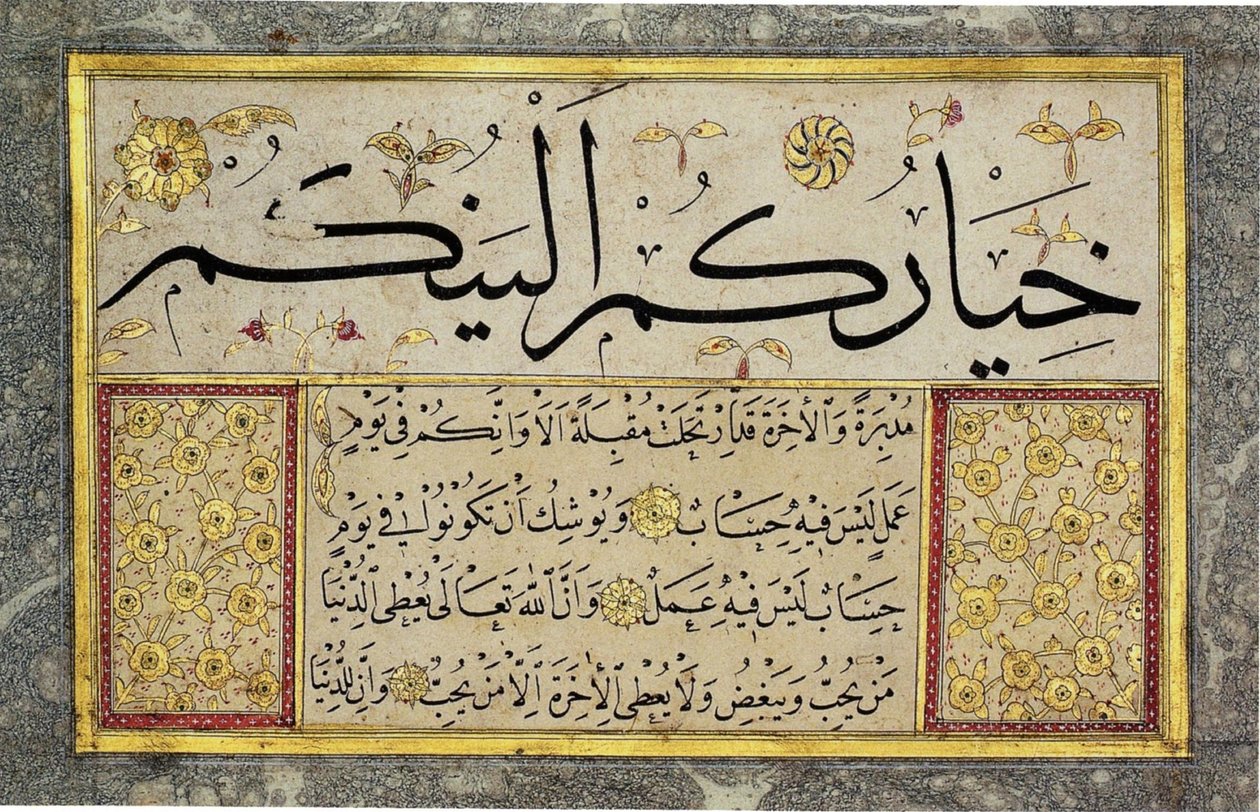 خِيَارُكُمْ اَلْيَنُكُمْ
مُدْبِرَةً وَالْاٰخِرَةَ قَدِ ارْتَحَلَتْ مُقْبِلَةً اَلَا وَاِنَّكُمْ فِي يَوْمِ
عَمَلٍ لَيْسَ فِيهِ حِسَابٌ وَيُوشِكُ اَنْ تَكُونُوا فِي يَوْمِ
حِسَابٍ لَيْسَ فِيهِ عَمَلٌ وَاَنَّ اللّٰهَ تَعَالَى يُعْطِي الدُّنْيَا
مَنْ يُحِبُّ وَيُبْغِضُ وَلَا يُعْطِي الْاٰخِرَةَ اِلَّا مَنْ يُحِبُّ وَاِنَّ لِلدُّنْيَا